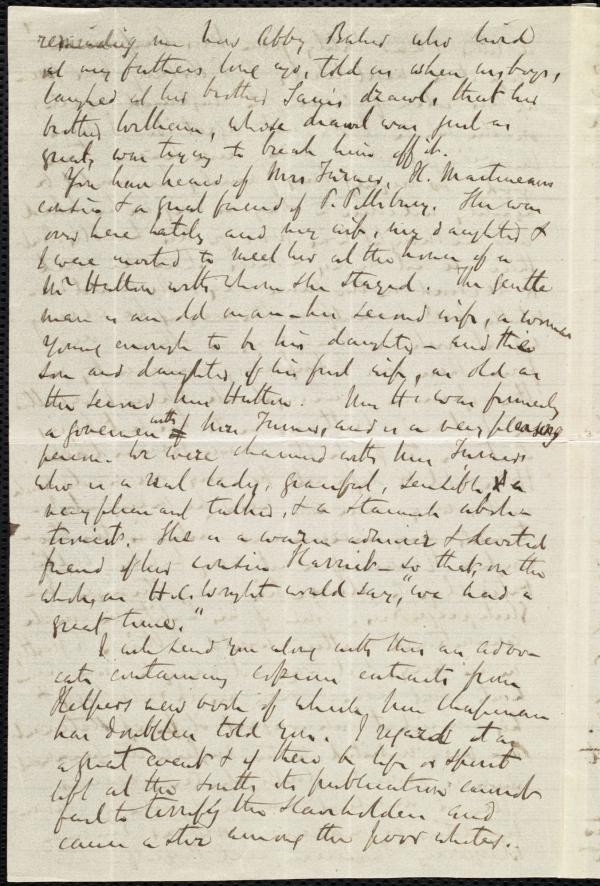 reminding me how Abby Baker who lived
at my fathers long ago, told us when us boys,
laughed at her brother Jamie's drawl, that her
brother William, whose drawl was just as
great, was trying to break him off it.
You have heard of Mrs Turner, H. Martineaus
cousin & a great friend of P. Pillsbury. She was
over here lately and my wife, my daughter &
I were invited to meet her at the house of a
Mr Hutton with whom she stayed. The gentle
man is an old man - his second wife, a woman
young enough to be his daughter - and the
son and daughter of his first wife, as old as
the second Mrs Hutton. Mrs H. was formerly
a governess with Mrs Turner, and is a very pleasing
person. We were charmed with Mrs Turner
who is a real lady, graceful, sensible, & a
very pleasant talker, & a staunch aboli-
tionist. She is a warm admirer & devoted
friend of her cousin Harriet - so that, on the
whole, as H. C. Wright would say, "we had a
great time."
I will send you along with this an Advo-
cate containing copious extracts from
Helpers new work of which Mrs Chapman
has doubtless told you. I regard it as
a great event & if there be life or spirit
left at the South its publication cannot
fail to terrify the slaveholders and
cause a stir among the poor whites.